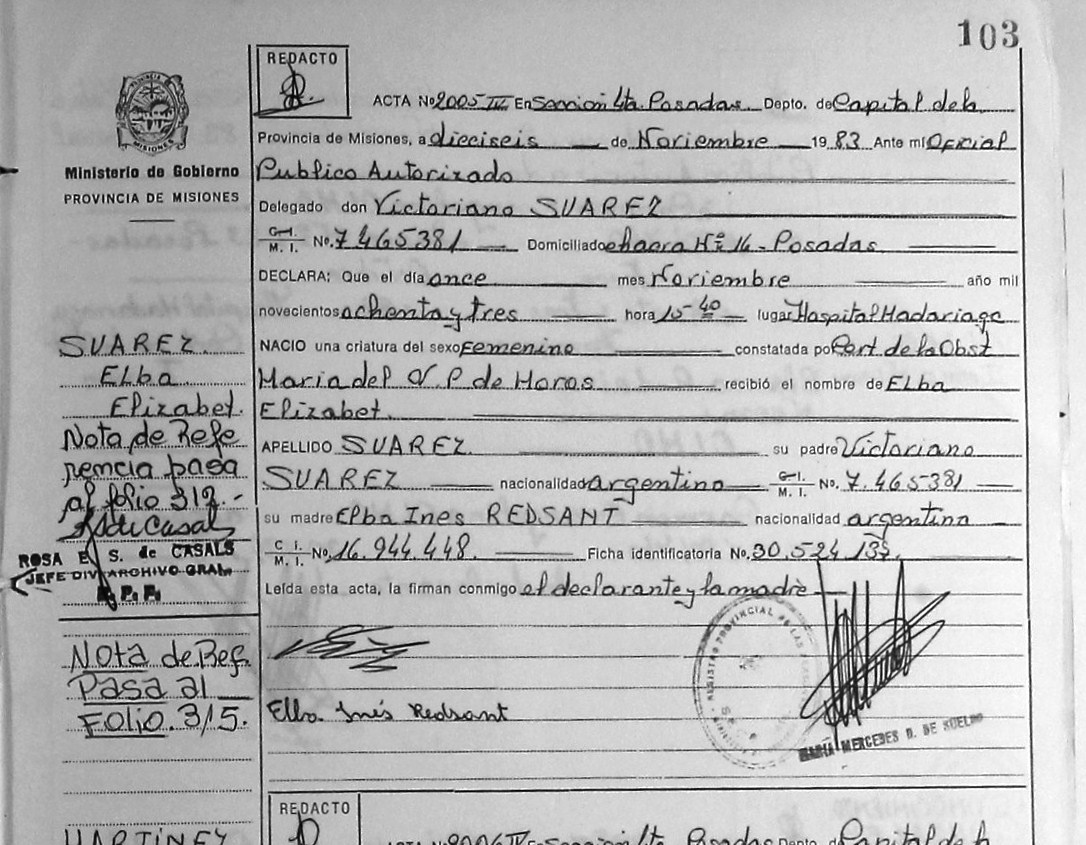 103
REDACTO
ACTA Nº 2005 IV En Sección 4ta Posadas Depto. de Capital de la
Provincia de Misiones, a dieciseis de Noviembre 1983 Ante mi Oficial
Publico Autorizado
Delegado don Victoriano SUAREZ
C. I. M. I. No. 7465381 Domiciliado chacra Nº 16 - Posadas
DECLARA: Que el día once mes Noviembre año mil
novecientos ochenta y tres hora 10-40 lugar Hospital Madariaga
NACIO una criatura del sexo Femenino constatada por Cert. de la Obst
Maria del P. de Horos recibió el nombre de Elba
Elizabet.
APELLIDO SUAREZ su padre Victoriano
SUAREZ nacionalidad argentino C. I. M. I. No. 7.465381
su madre Elba Ines REDSANT nacionalidad argentina
C. I. M. I. No. 16.944.448. Ficha identificatoria No. 30.524.137.
Leída esta acta, la firman conmigo el declarante y la madre
Elba Inés Redsant
MARIA MERCEDES D. DE SUELDO
PROVINCIA DE MISIONES
Ministerio de Gobierno
PROVINCIA DE MISIONES
SUAREZ
Elba
Elizabet.
Nota de Refe
rencia pasa
al folio 312.-
ROSA E. S. de CASALS
JEFE DIV. ARCHIVO GRAL.
R. P. P.
Nota de Ref.
Pasa al
Folio 315.
REDACTO
MARTINEZ
ACTA Nº 2006 IV En Sección 4ta Posadas Depto. de Capital de la